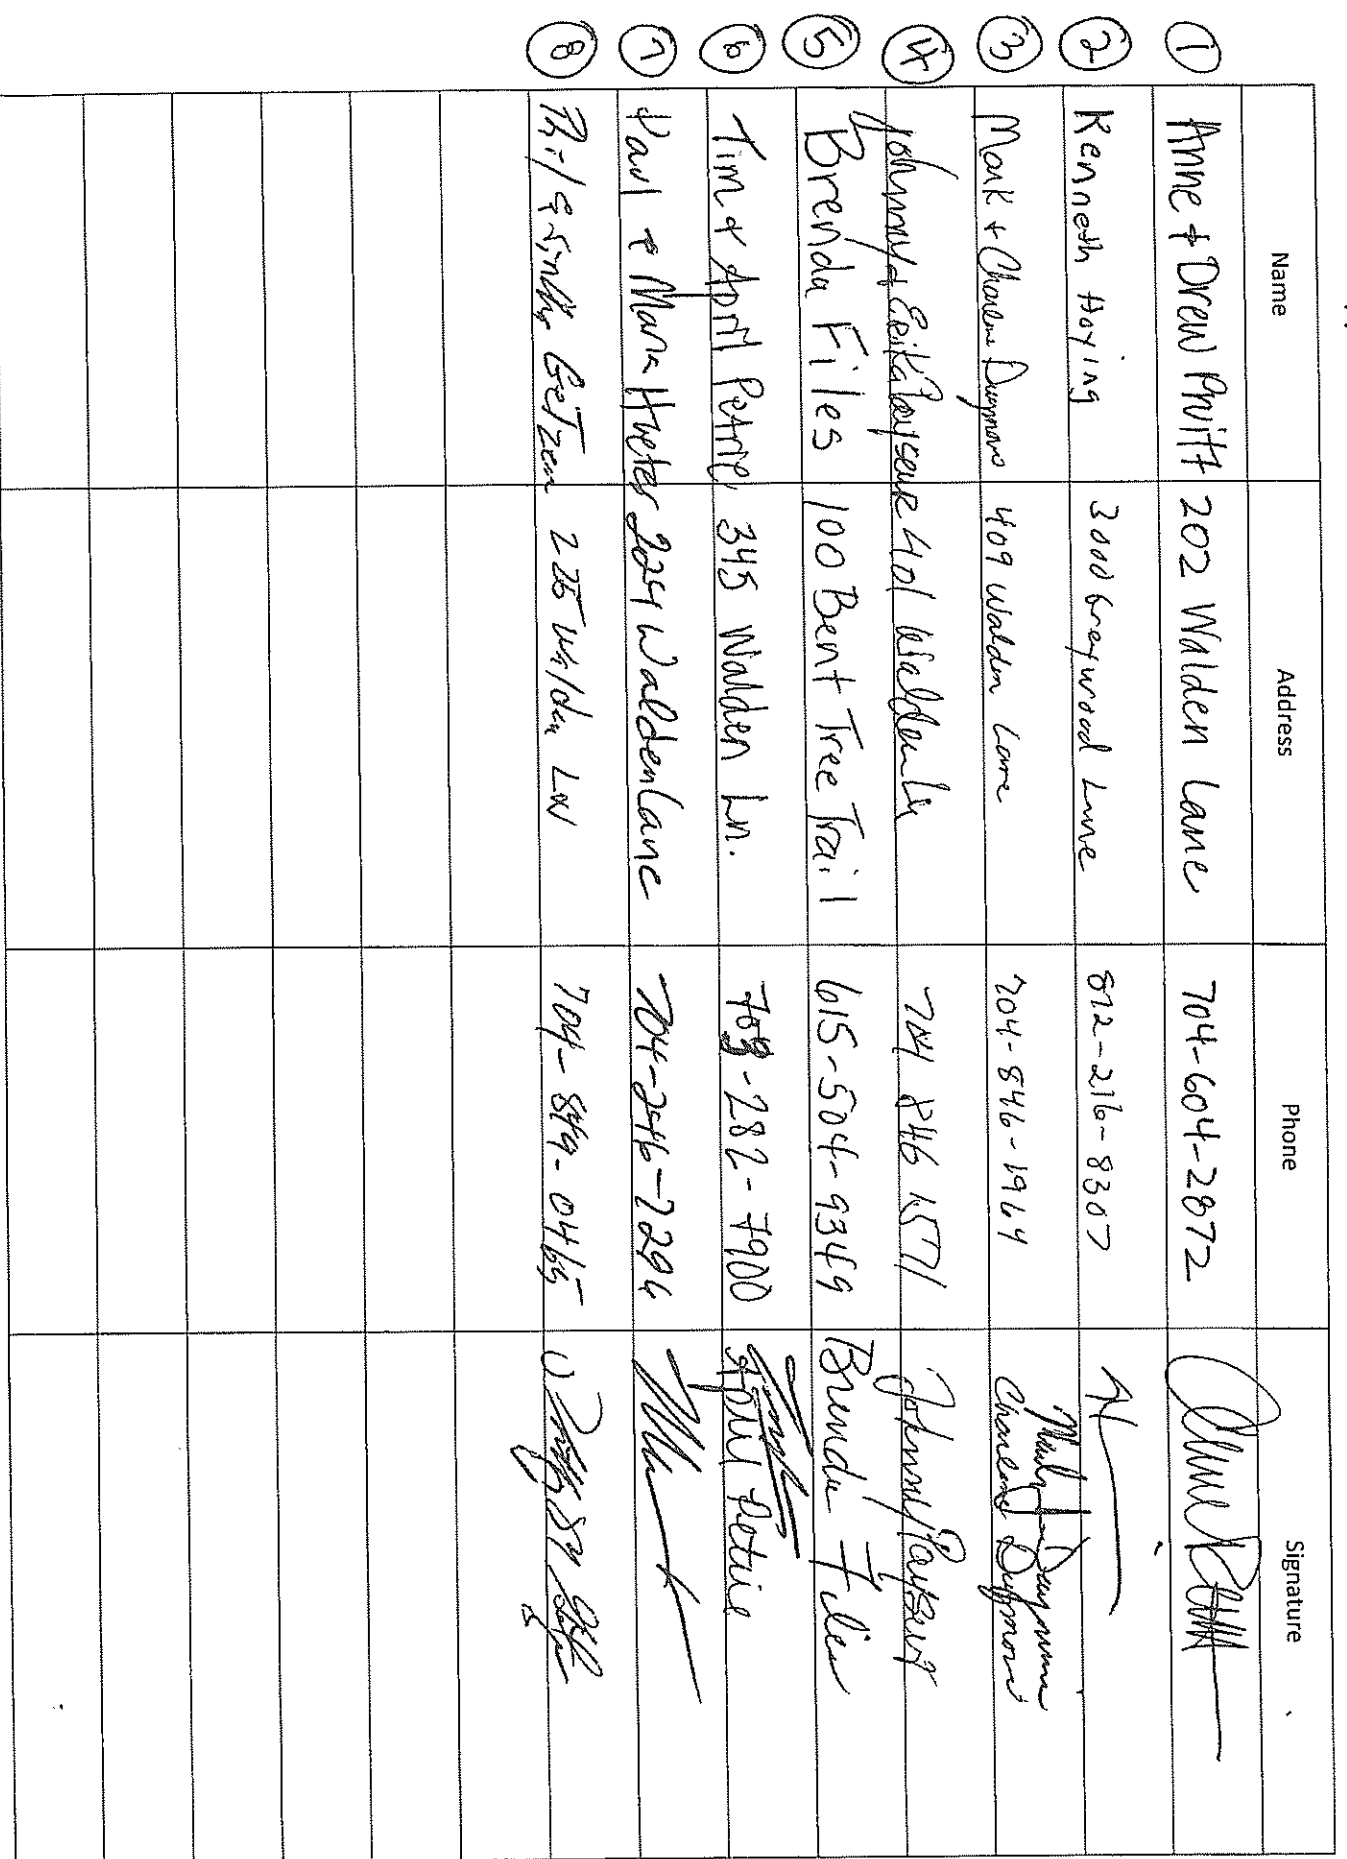 Name Address Phone Signature
① Anne + Drew Pruitt 202 Walden Lane 704-604-2872
② Kenneth Hoying 3000 Greywood Lane 812-216-8307
③ Mark + Charlene 409 Walden Lane 704-846-1964
④ Johnny & Erika 401 Walden Ln 704 846 1571 Johnny
⑤ Brenda Files 100 Bent Tree Trail 615-504-9349 Brenda Files
⑥ Tim & April Petrie 345 Walden Ln. -282-7900 April Petrie
⑦ Paul & Maria 224 Walden Lane 704-246-7294
⑧ Phil & Getzen Walden LN 704-849-0465